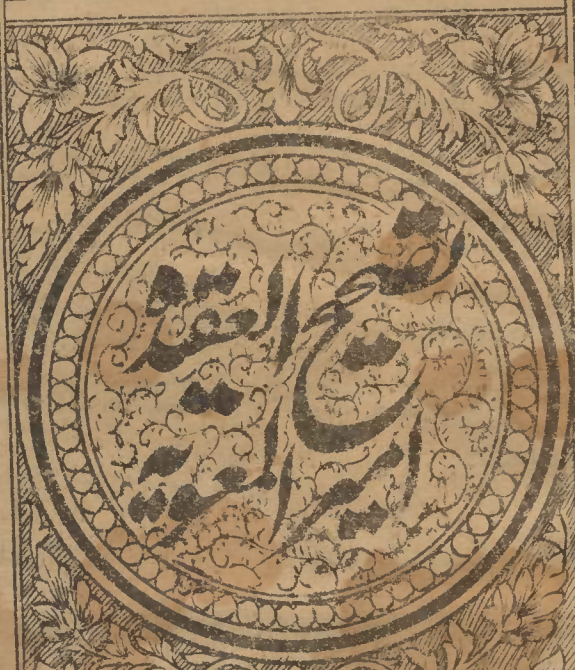 تصحیح العقیدہ
امیر المعویہ